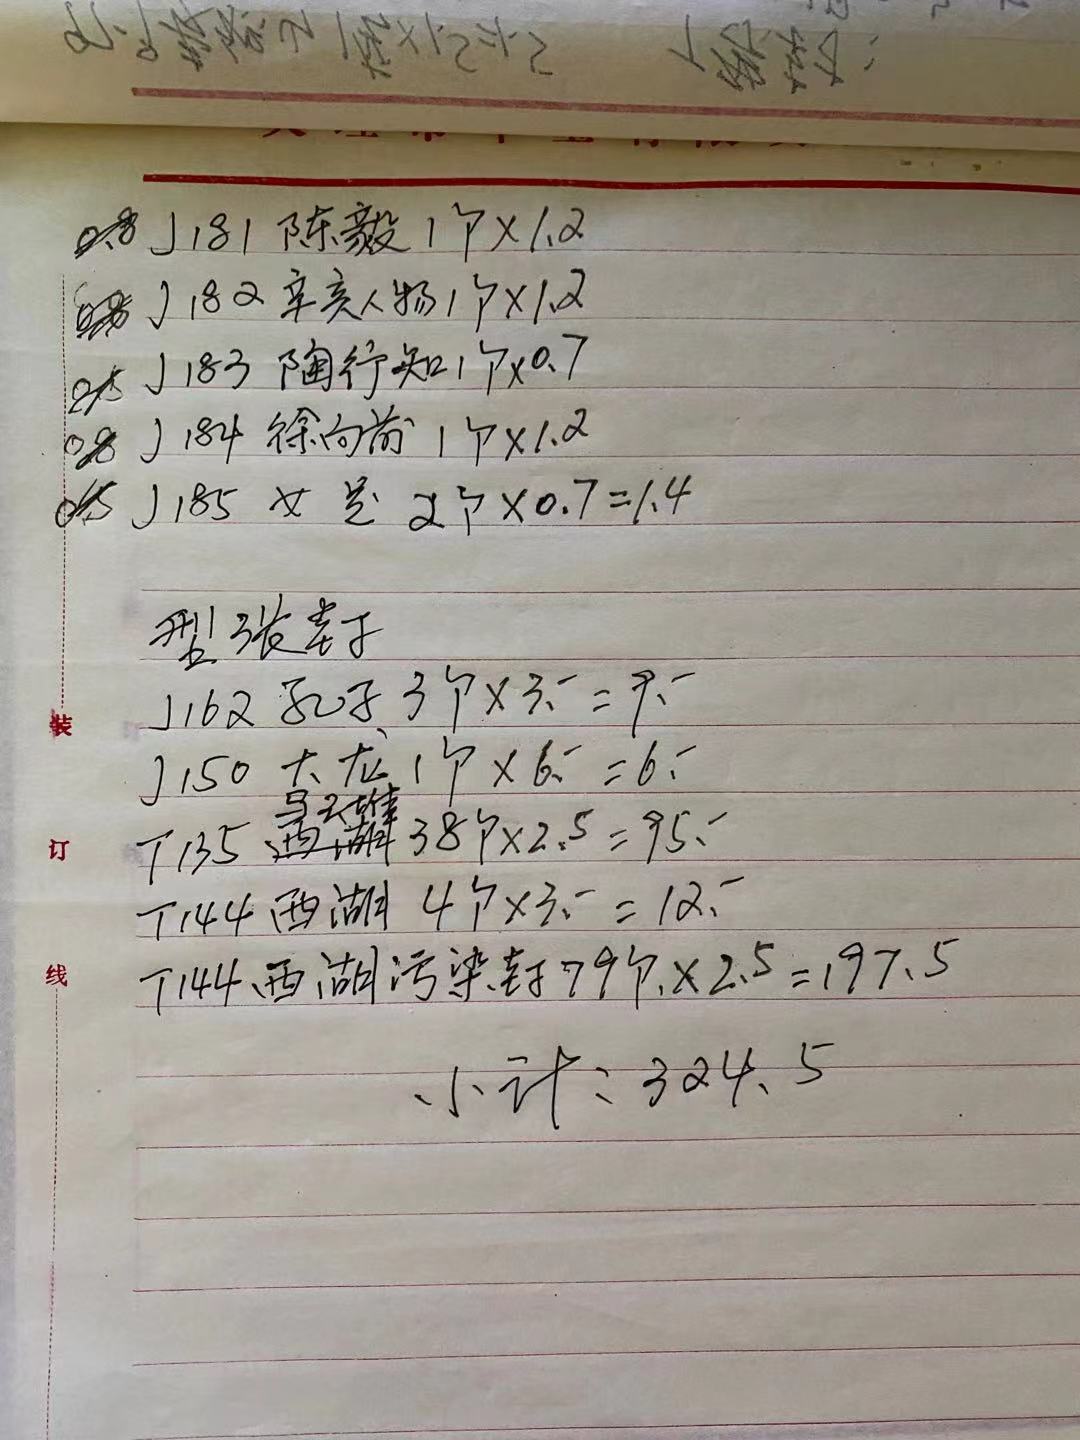 J181 陈毅 1个×1.2
J182 辛亥人物1个×1.2
J183 陶行知1个×0.7
J184 徐向前 1个×1.2
J185 女足 2个×0.7=1.4
型张封
J162 孔子 3个×3.- = 9.-
J150 大龙 1个×6.- = 6.-
马王堆
T135 西湖 38个×2.5=95.-
T144 西湖 4个×3.- = 12.-
T144 西湖污染封79个×2.5=197.5
小计:324.5
装
订
线